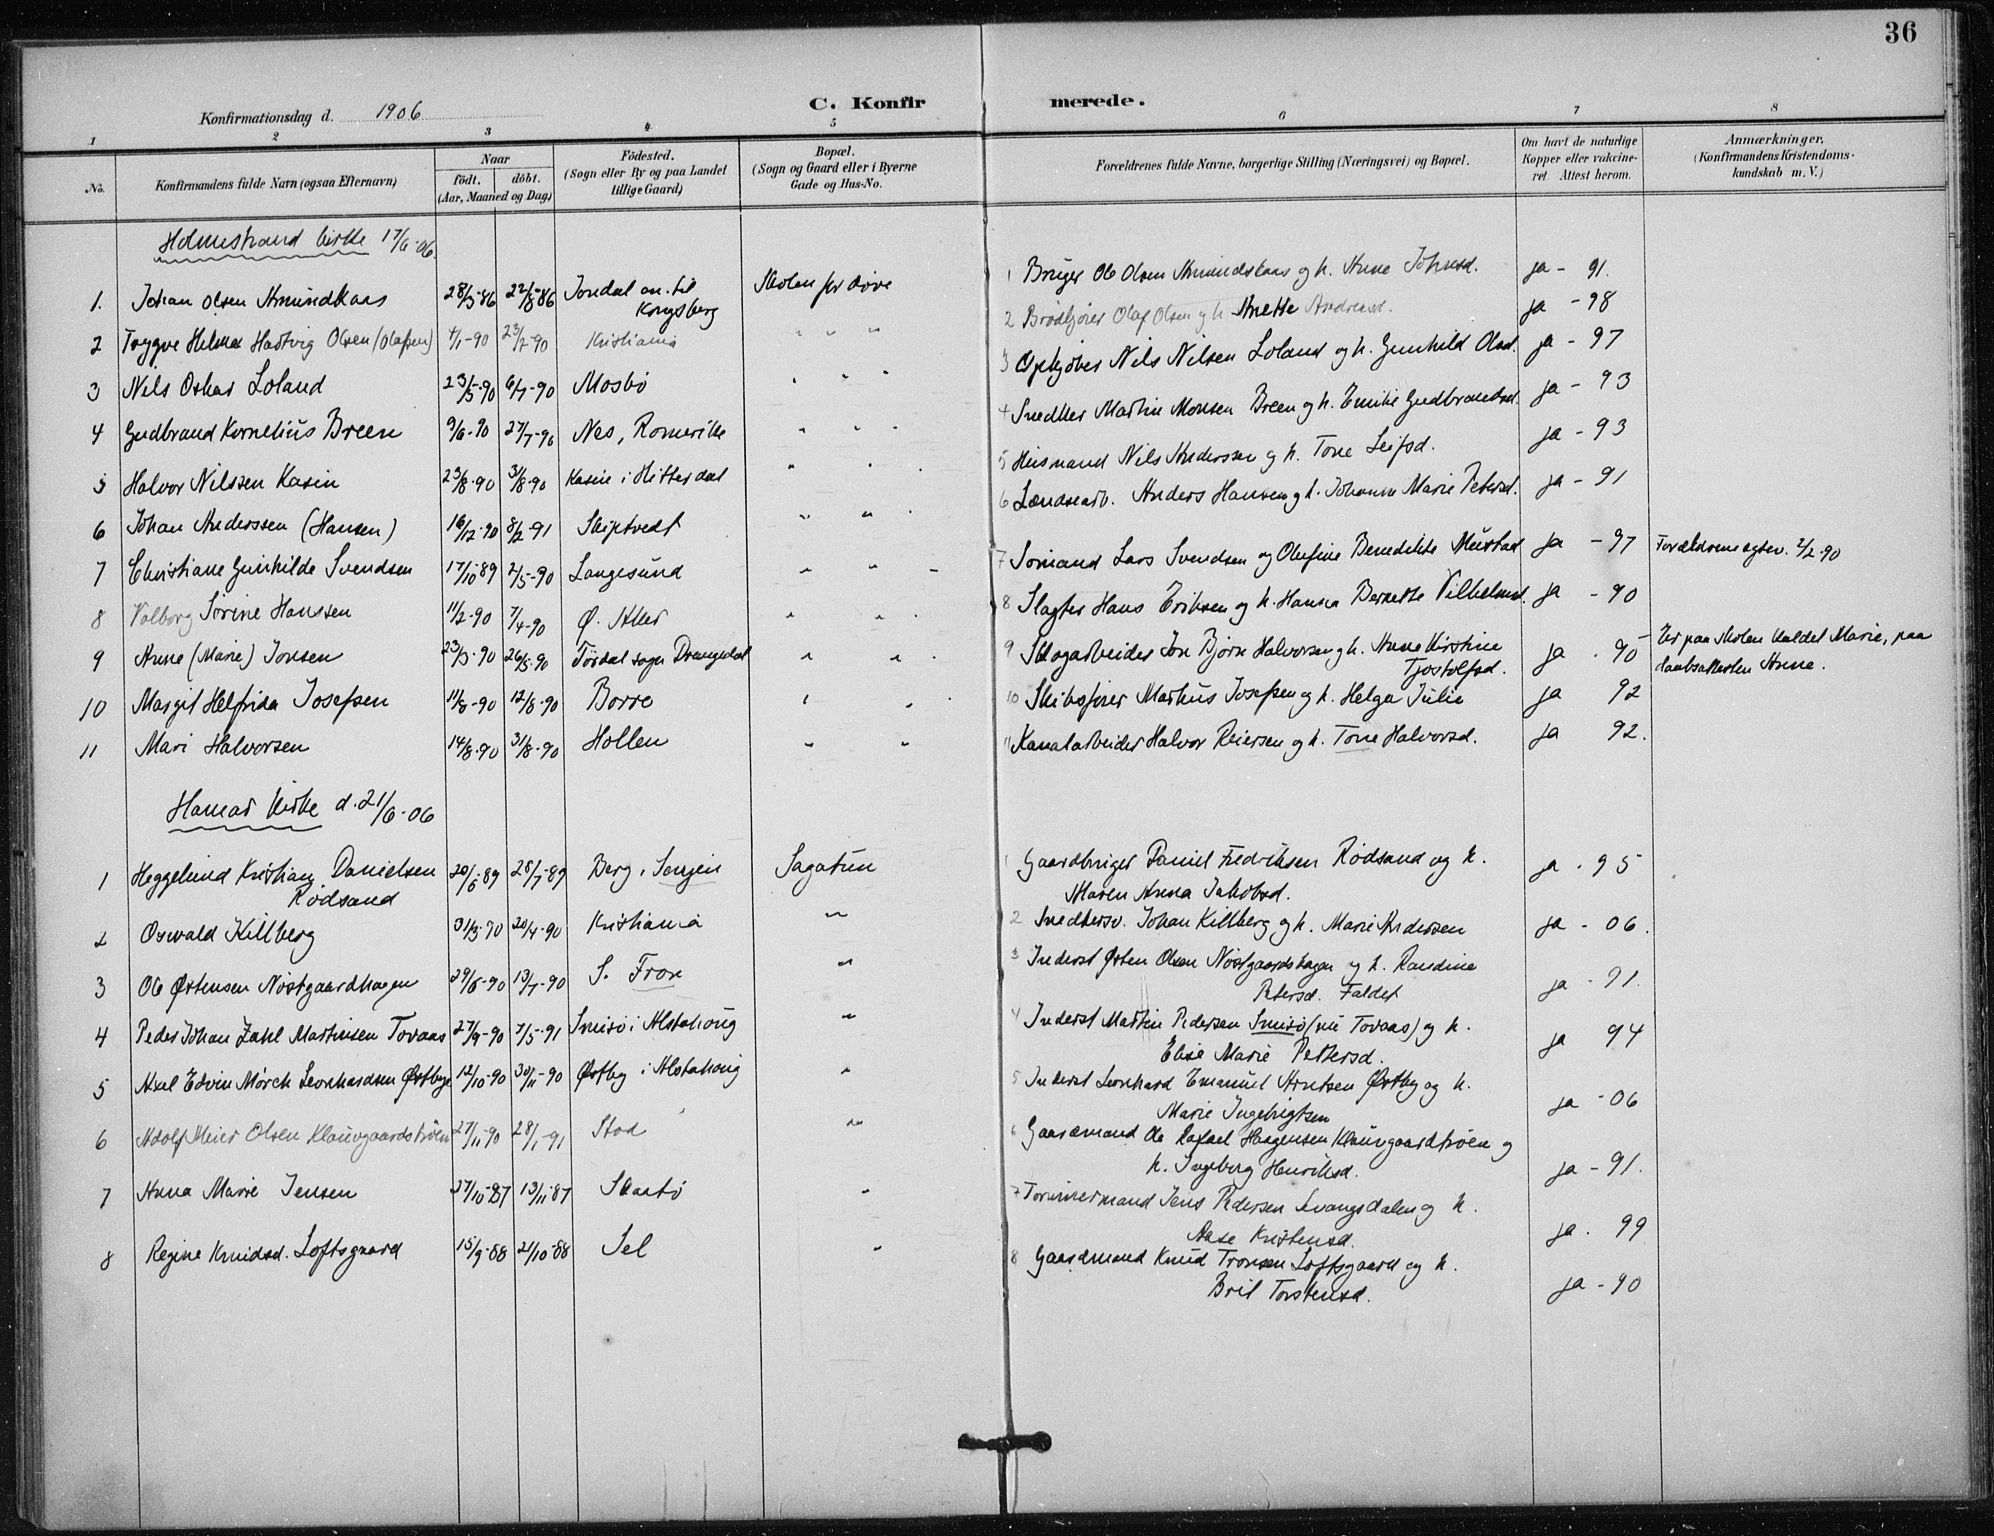 36
Konfirmationsdag d. 1906
C. Konfirmerede.
1 2 3 4 5 6 7 8
No.
Konfirmandens fulde Navn (ogsaa Efternavn)
Naar
födt. döbt.
(Aar, Maaned og Dag)
Födested.
(Sogn eller By og paa Landet
tillige Gaard)
Bopæl.
(Sogn og Gaard eller i Byerne
Gade og Hus-No.
Forældrenes fulde Navne, borgerlige Stilling (Næringsvei) og Bopæl.
Om havt de naturlige
Kopper eller vakcine-
ret. Attest herom.
Anmærkninger,
(Konfirmandens Kristendoms-
kundskab m. V.)
Holmestrand kirke 17/6-06.
1. Johan Olsen Amundkaas 28/3-86 22/8-86 Jondal an. til Kongsberg Skolen for døve 1 Bruger Ole Olsen Amundskaas og h. Anne Johnsd. ja - 91.
2 Trygve Helmer Hartvig Olsen (Olafsen) 4/1-90 23/2-90 Kristiania " " " 2 Brødkjører Olaf Olsen og h. Anette Andreasd. ja - 98
3 Nils Oskar Loland 23/5-90 6/7-90 Mosbö " " " 3 Opkjøber Nils Nilsen Loland og h. Gunhild Olsd. ja - 97
4 Gudbrand Kornelius Breen 9/6-90 27/7-90 Nes, Romerike " " " 4 Snedker Martin Monsen Breen og h. Emilie Gudbrandsd. ja - 93
5 Halvor Nilssen Kasin 23/8-90 31/8-90 Kasin i Hitterdal " " " 5 Husmand Nils Anderssen og h. Tone Leifsd. ja - 93
6 Johan Anderssen (Hansen) 16/12-90 8/2-91 Skiptvedt " " " 6 Lændsearb. Anders Hansen og h. Johanne Marie Petersd. ja - 91
7 Christiane Gunhilde Svendsen 17/10-89 2/5-90 Langesund " " - 7 Sömand Lars Svendsen og Olufine Benedikte Mustad ja - 97 Forældrene egtev. 2/2-90
8 Valborg Sörine Hanssen 11/2-90 7/4-90 Ø. Aker " " " 8 Slagter Hans Eriksen og h. Hanna Bernette Vilhelmsd. ja - 90
9 Anne (Marie) Jonsen 23/3-90 26/5-90 Tördal sogn Drangedal " " " 9 Skogarbeider Jon Björn Halvorsen og h. Anne Kirstine Tjostolfsd. ja - 90 Er paa skolen kaldet Marie, paa daabsattesten Anne.
10 Margit Helfrida Josefsen 11/3-90 17/8-90 Borre " " 10 Skibsfører Markus Josefsen og h. Helga Julie ja 92
11 Mari Halvorsen 14/8-90 31/8-90 Hollen " " 11 Kanalarbeider Halvor Reiersen og h. Tone Halvorsd. ja 92.
Hamar kirke d. 21/6-06
1 Heggelund Kristian Danielsen Rödsand 20/6-89 28/7-89 Berg i Senjen Sagatun 1 Gaardbruger Daniel Fredriksen Rödsand og h. Maren Anna Jakobsd. ja - 95
2 Oswald Killberg 31/3-90 20/4-90 Kristiania " 2 Snedkersv. Johan Killberg og h. Marie Andersen ja - 06.
3 Ole Østensen Nöstgaardhagen 29/6-90 13/7-90 S. Fron " 3 Inderst Østen Olsen Nöstgaardshagen og h. Randine Petersd. Faldet ja - 91.
4 Peder Johan Zahl Martinsen Tovaas 27/9-90 7/5-91 Smisö i Alstahoug " 4 Inderst Martin Pedersen Smisö (nu Tovaas) og h. Elise Marie Pettersd. ja 94
5 Axel Edvin Mörch Leonhardsen Østbye 12/10-90 30/11-90 Østby i Alstahoug " 5 Inderst Leonhard Emanuel Arntsen Østby og h. Marie Ingebrigtsen ja - 06
6 Adolf Meier Olsen Klauvgaardströen 27/11-90 28/1-91 Stod " 6 Gaardmand Ole Rafael Haagensen Klauvgaardtröen og h. Ingeborg Henriksd. ja - 91.
7 Anna Marie Jensen 27/10-87 13/11-87 Skaatö " 7 Tömmermand Jens Pedersen Levangsdalen og h. Aase Kristensd. ja - 99
8 Regine Knudsd. Loftsgaard 15/9-88 21/10-88 Sel " 8 Gaardmand Knud Tronsen Loftsgaard og h. Brit Torstensd. ja - 90